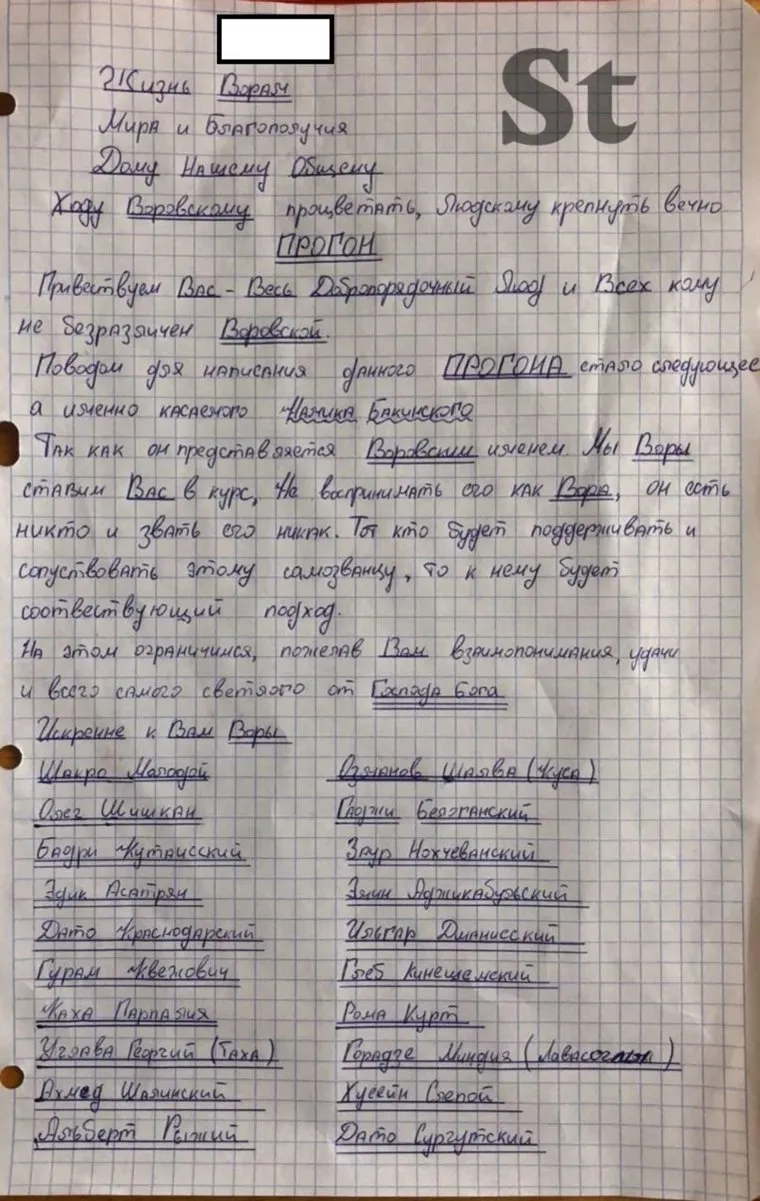 St
Жизнь Ворам
Мира и Благополучия
Дому Нашему Общему
Ходу Воровскому процветать, Людскому крепнуть вечно
ПРОГОН
Приветствуем Вас - Весь Добропорядочный Люд и Всех кому
не безразличен Воровской.
Поводом для написания данного ПРОГОНА стало следующее
а именно касаемого Намика Бакинского
Так как он представляется Воровским именем. Мы Воры
ставим Вас в курс, Не воспринимать его как Вора, он есть
никто и звать его никак. Тот кто будет поддерживать и
сопуствовать этому самозванцу, то к нему будет
соотвествующий подход.
На этом ограничимся, пожелав Вам взаимопонимания, удачи
и всего самого светлого от Господа Бога
Искренне к Вам Воры
Шакро Молодой Озманов Шалва (Куса)
Олег Шишкан Гаджи Белаганский
Бадри Кутаисский Заур Нохчеванский
Эдик Асатрян Элин Аджикабульский
Дато Краснодарский Ильгар Дманисский
Гурам Квежович Глеб Кинешемский
Каха Парпалия Рома Курт
Углава Георгий (Таха) Горадзе Миндия ( )
Ахмед Шалинский Хусейн Слепой
Альберт Рыжий Дато Сургутский